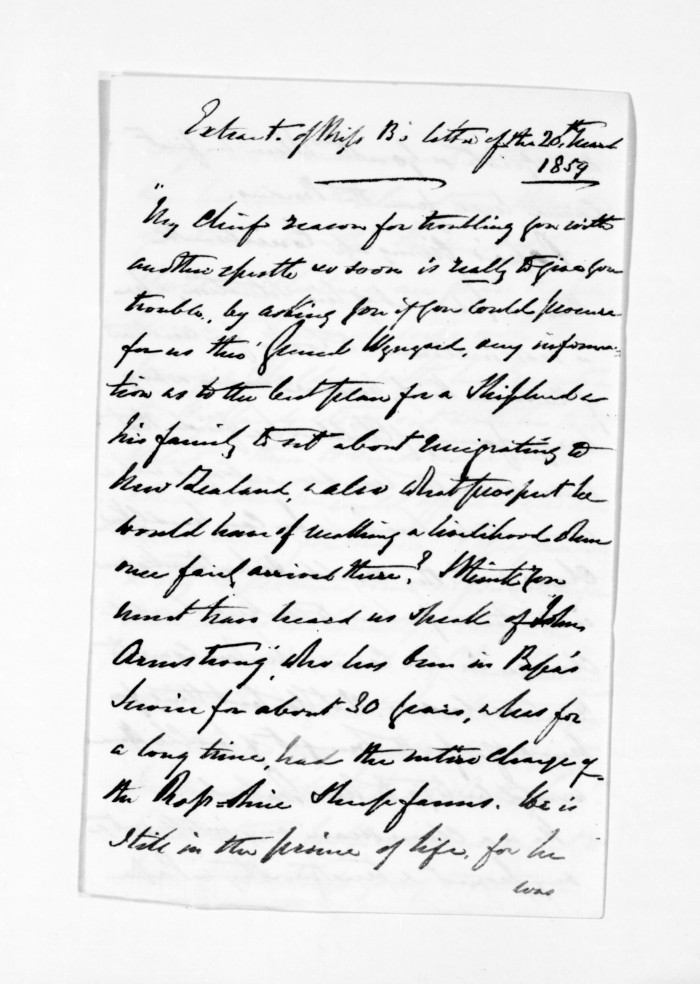 Extract of Miss B's letter of the 20th March
1859
"My chief reason for troubling you with
another epistle so soon is really to give you
trouble, by asking you if you could procure
for us thro' General Wynyard, any informa-
tion as to the best plan for a Shepherd &
his family to set about emigrating to
New Zealand, & also what prospect he
would have of making a livelihood when
once fairly arrived there? I think you
must have heard us speak of "John
Armstrong", who has been in Papa's
Service for about 30 years, & has for
a long time, had the entire charge of
the Ross-shire Sheep farms. He is
still in the prime of life, for he
was